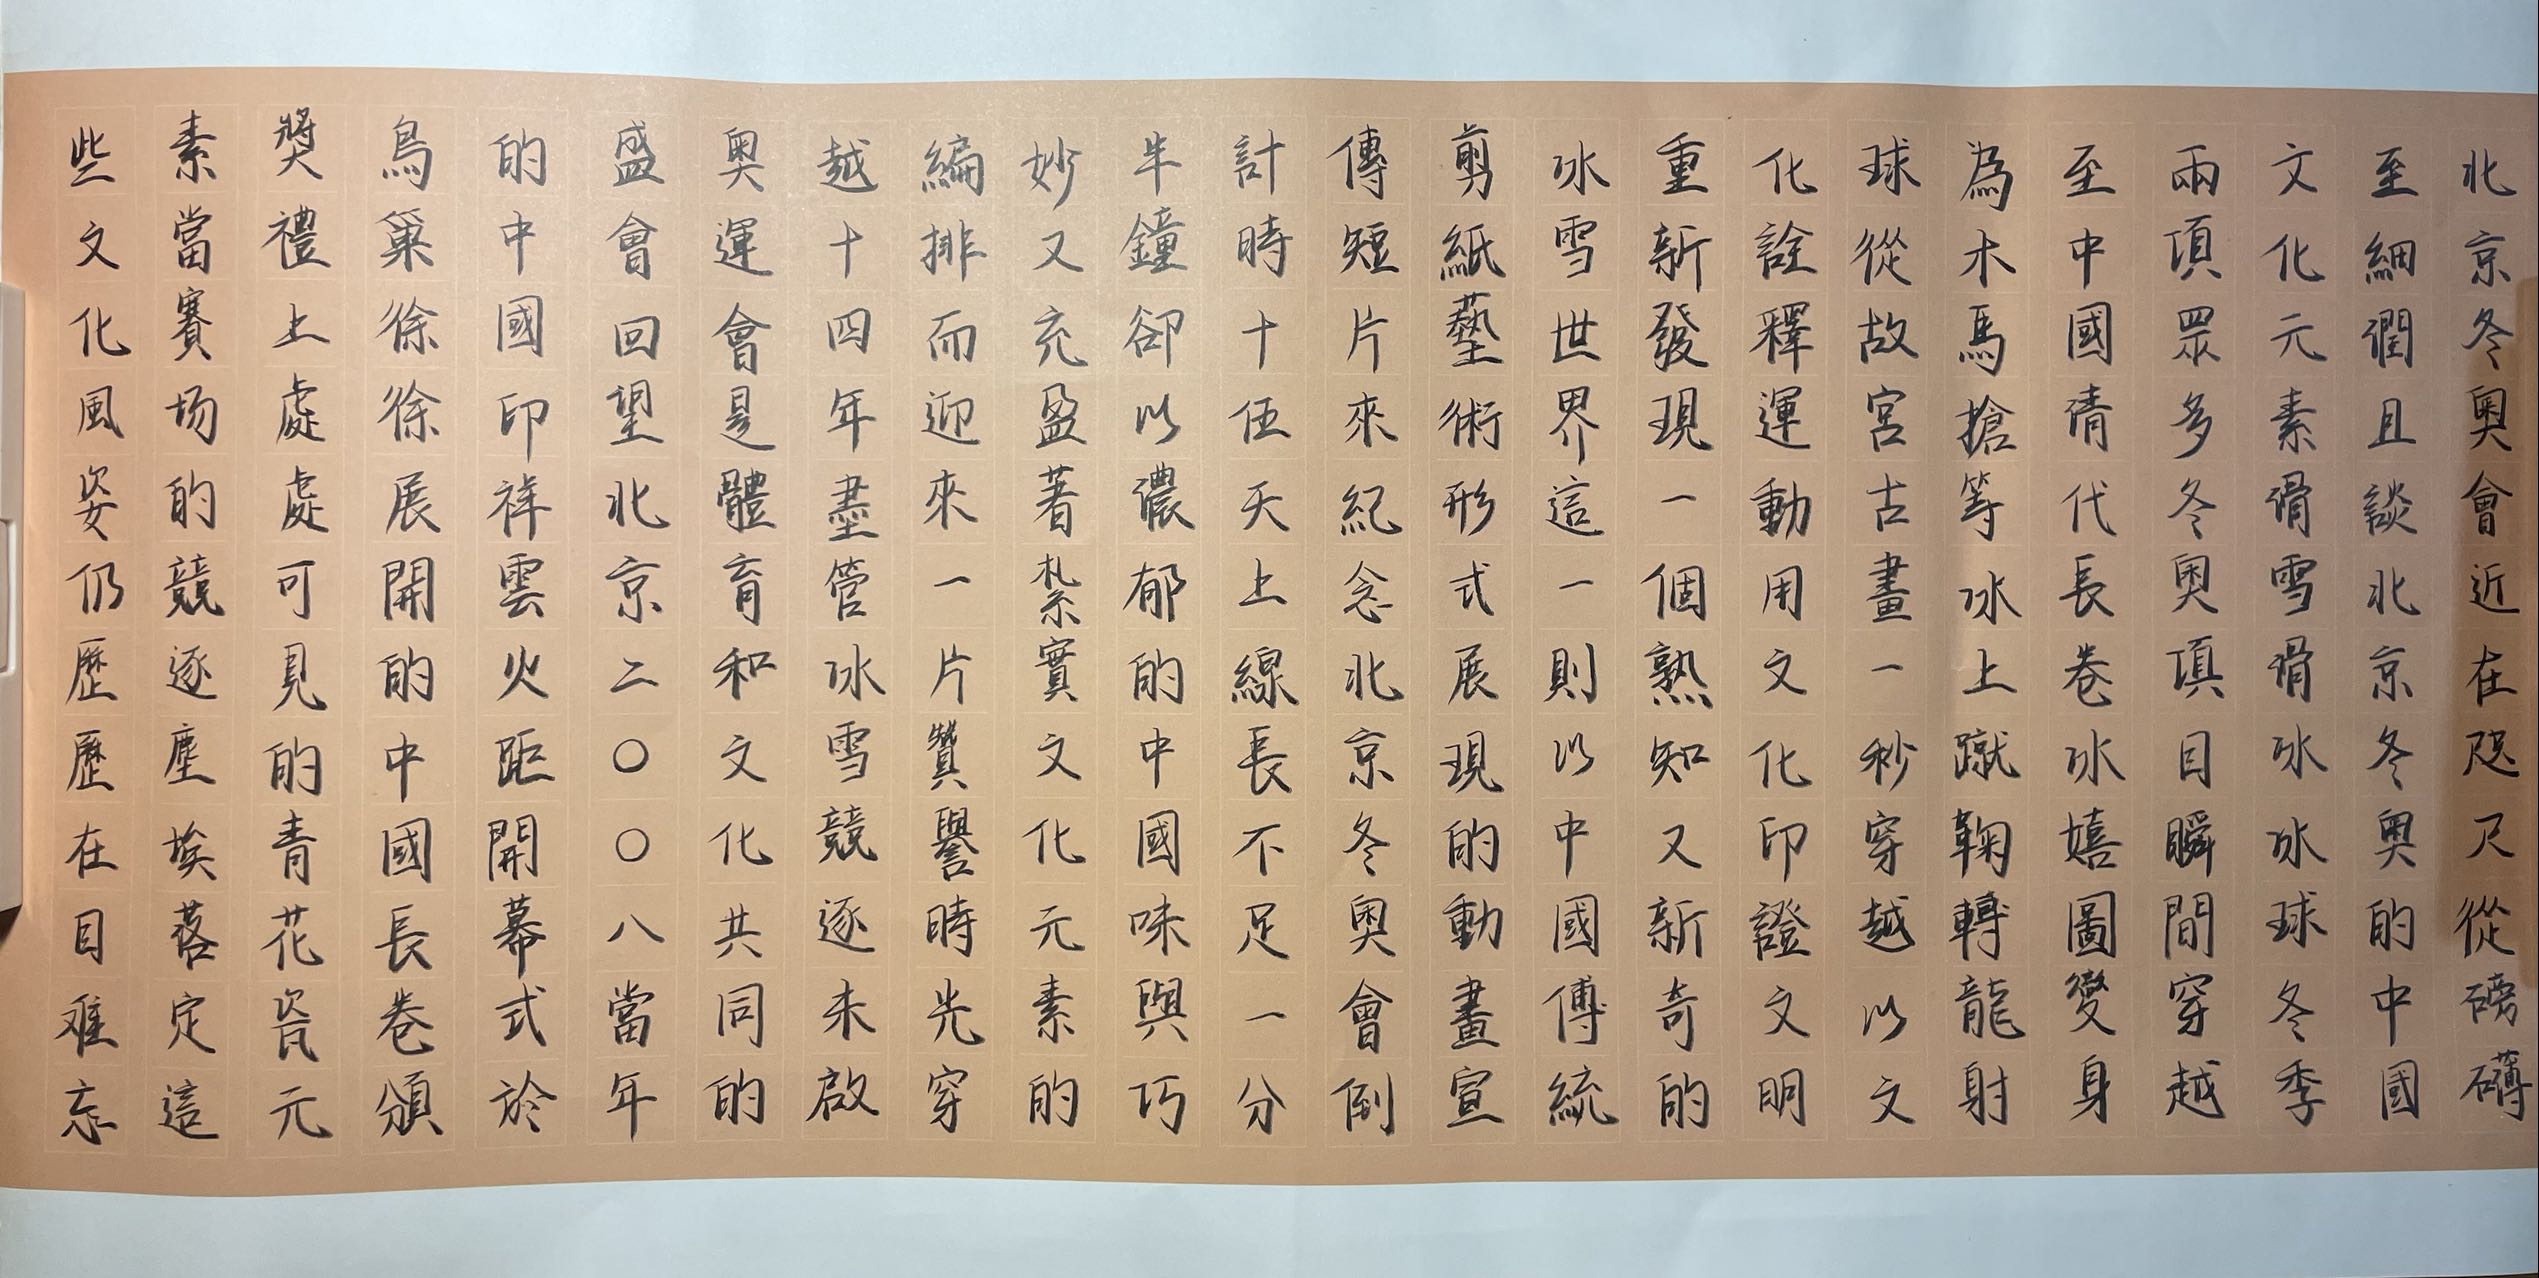 北京冬奧會近在咫尺從磅礴
至細潤且談北京冬奧的中國
文化元素滑雪滑冰冰球冬季
兩項眾多冬奧項目瞬間穿越
至中國清代長卷冰嬉圖變身
為木馬搶等冰上蹴鞠轉龍射
球從故宮古畫一秒穿越以文
化詮釋運動用文化印證文明
重新發現一個熟知又新奇的
冰雪世界這一則以中國傳統
剪紙藝術形式展現的動畫宣
傳短片來紀念北京冬奧會倒
計時十伍天上線長不足一分
半鐘卻以濃郁的中國味與巧
妙又充盈著紮實文化元素的
編排而迎來一片贊譽時光穿
越十四年盡管冰雪競逐未啟
奧運會是體育和文化共同的
盛會回望北京二〇〇八當年
的中國印祥雲火距開幕式於
鳥巢徐徐展開的中國長卷頒
獎禮上處處可見的青花瓷元
素當賽场的競逐塵埃落定這
些文化風姿仍歷歷在目难忘